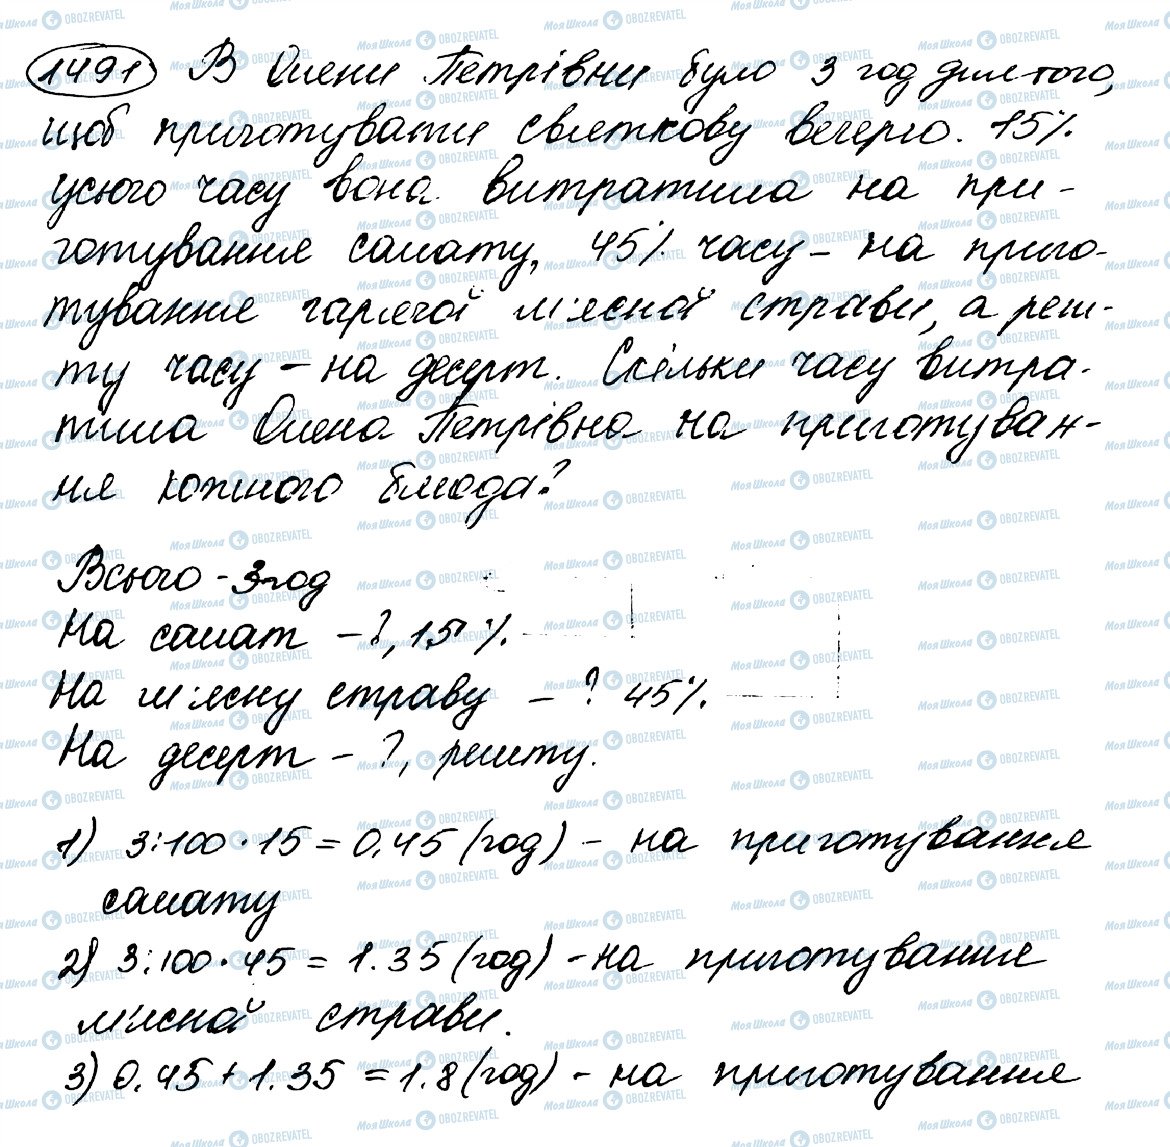 1491 В Олени Петрівни було 3 год для того,
щоб приготувати святкову вечерю. 15%
усього часу вона витратила на при-
готування салату, 45% часу - на приго-
тування гарячої м'ясної страви, а реш-
ту часу - на десерт. Скільки часу витра-
тила Олена Петрівна на приготуван-
ня кожного блюда?
Всього - 3 год
На салат - ?, 15%.
На м'ясну страву - ? 45%.
На десерт - ?, решту.
1) 3:100·15 = 0,45 (год) - на приготування
салату
2) 3:100·45 = 1.35 (год) - на приготування
м'ясної страви.
3) 0.45 + 1.35 = 1.8 (год) - на приготування
Моя Школа OBOZREVATEL